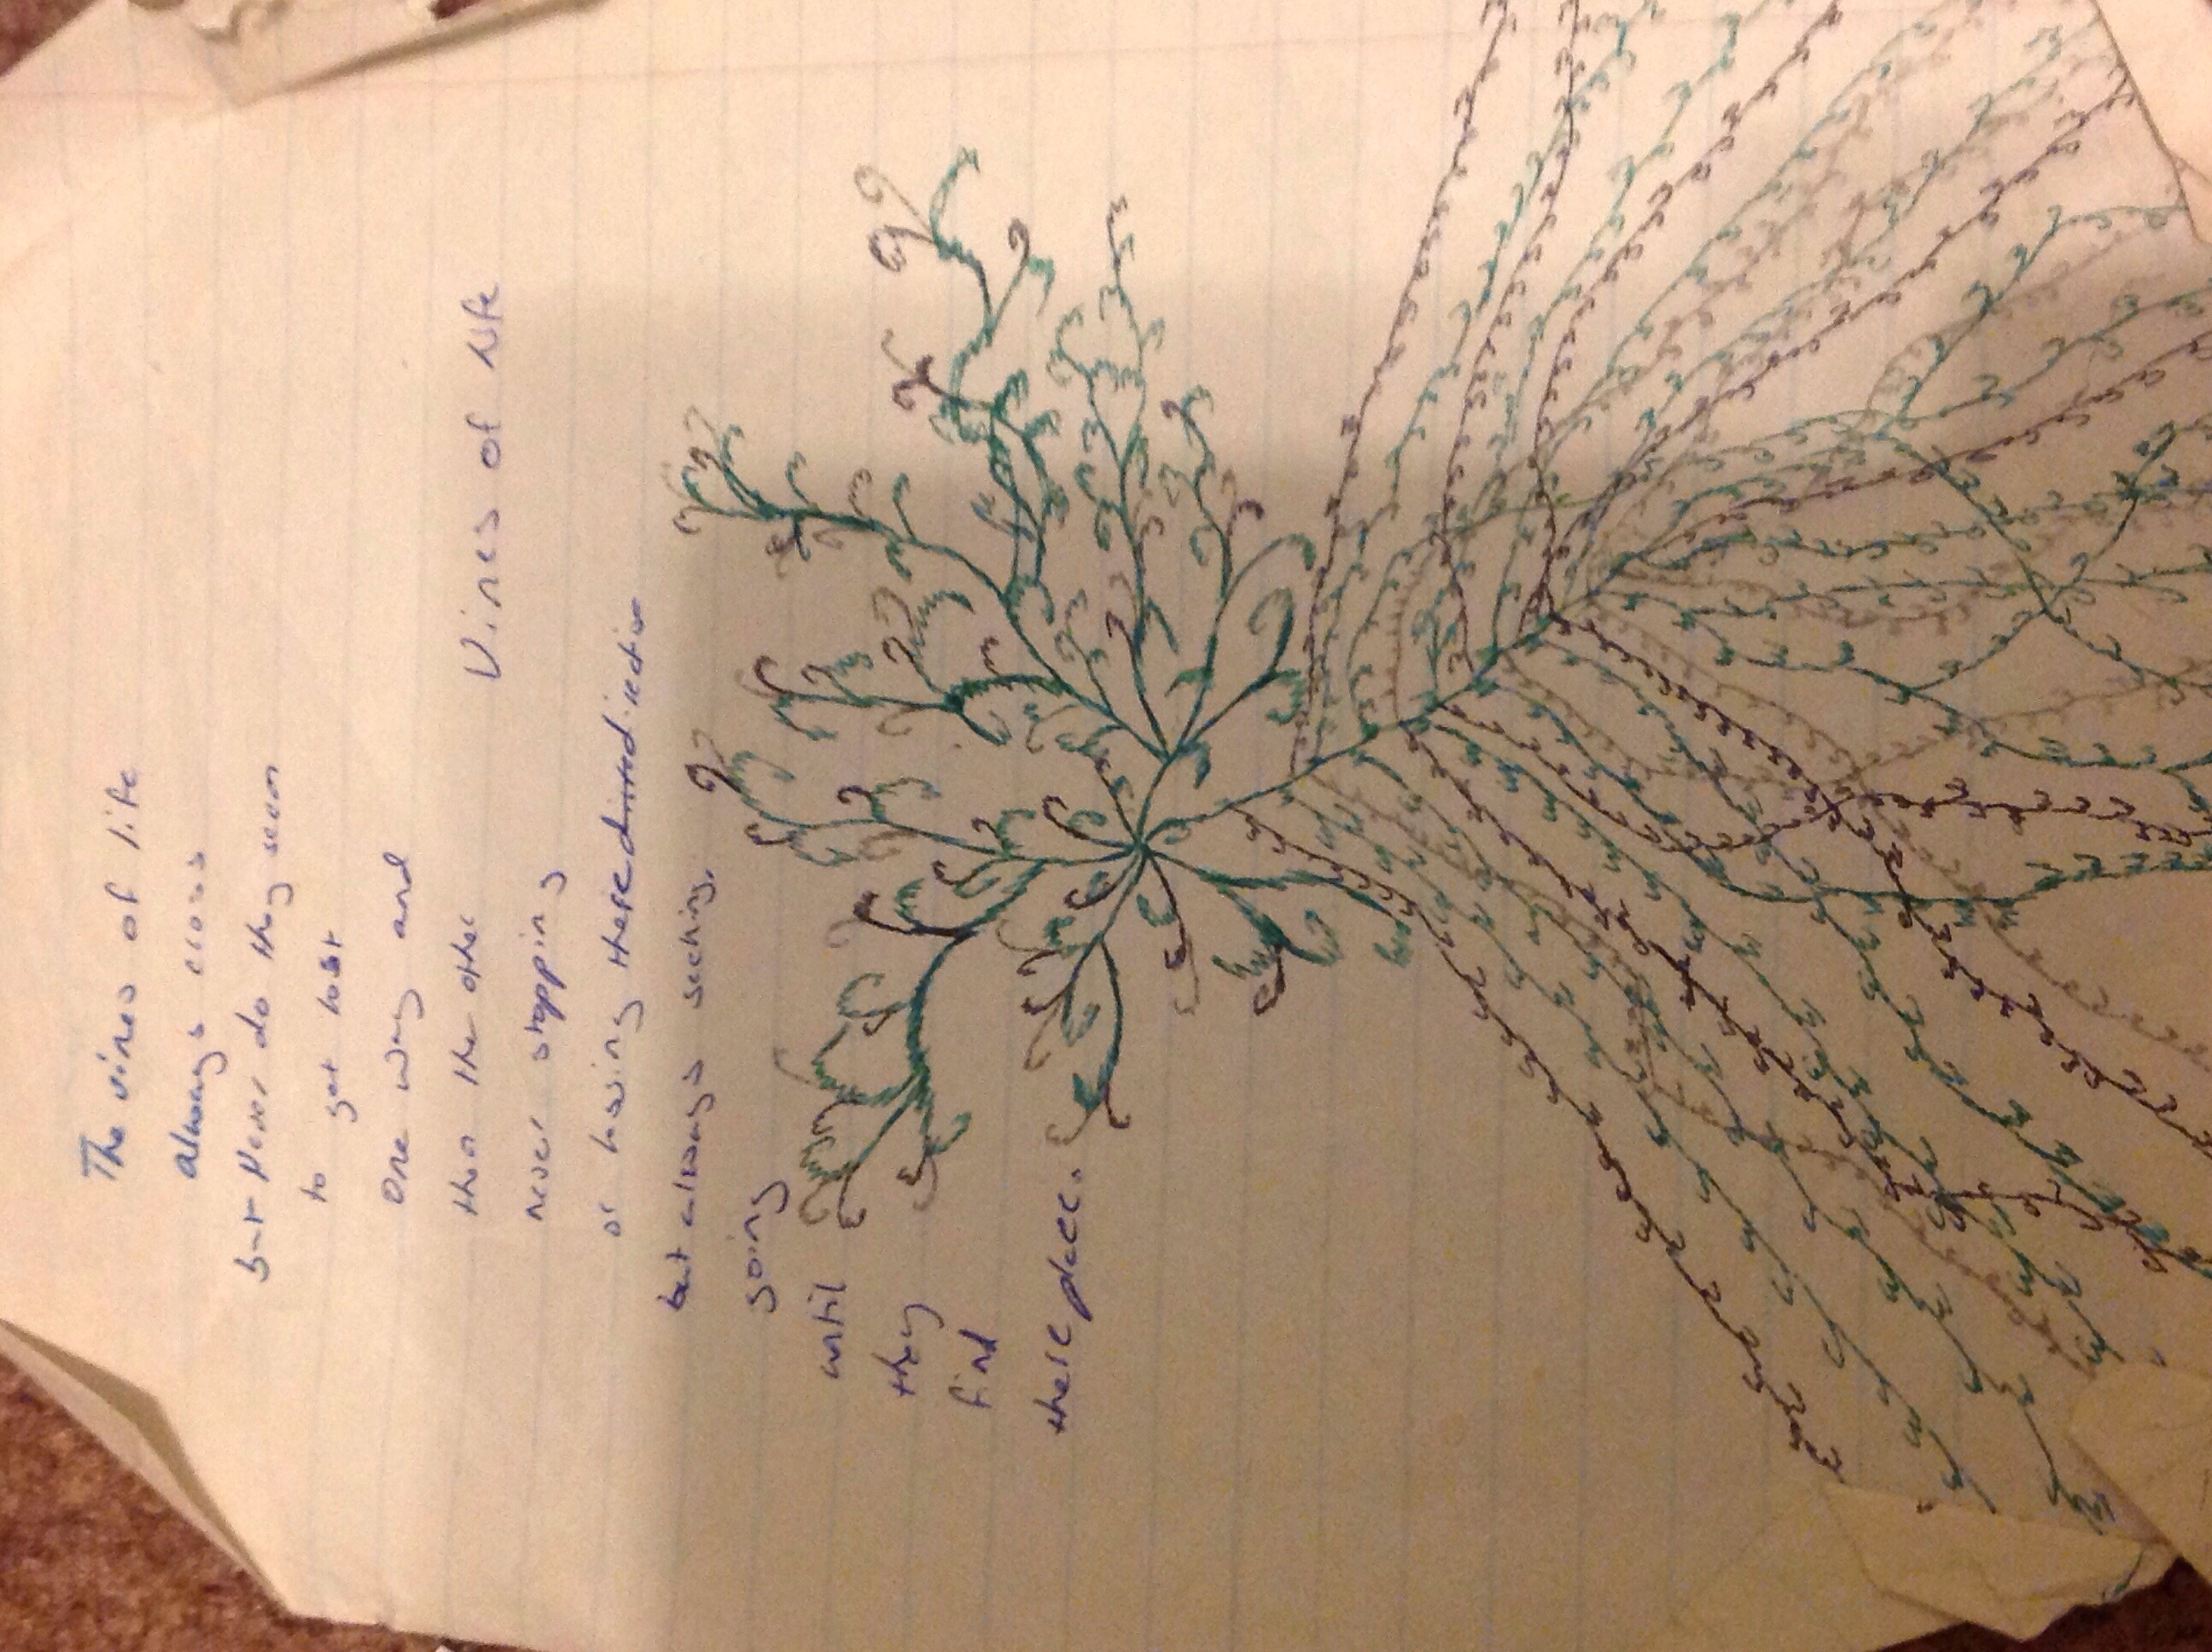 The vines of life
always cross
but Never do they seem
to get lost
One way and
then the other
Vines of life
never stopping
or losing there direction
but always seeking,
going
until
they
find
there place.